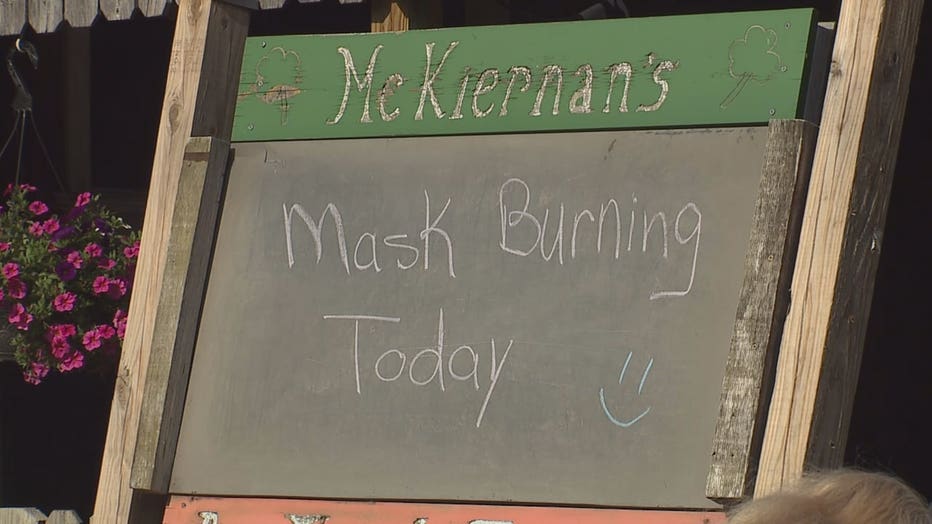 McKiernan's
Mask Burning
Today